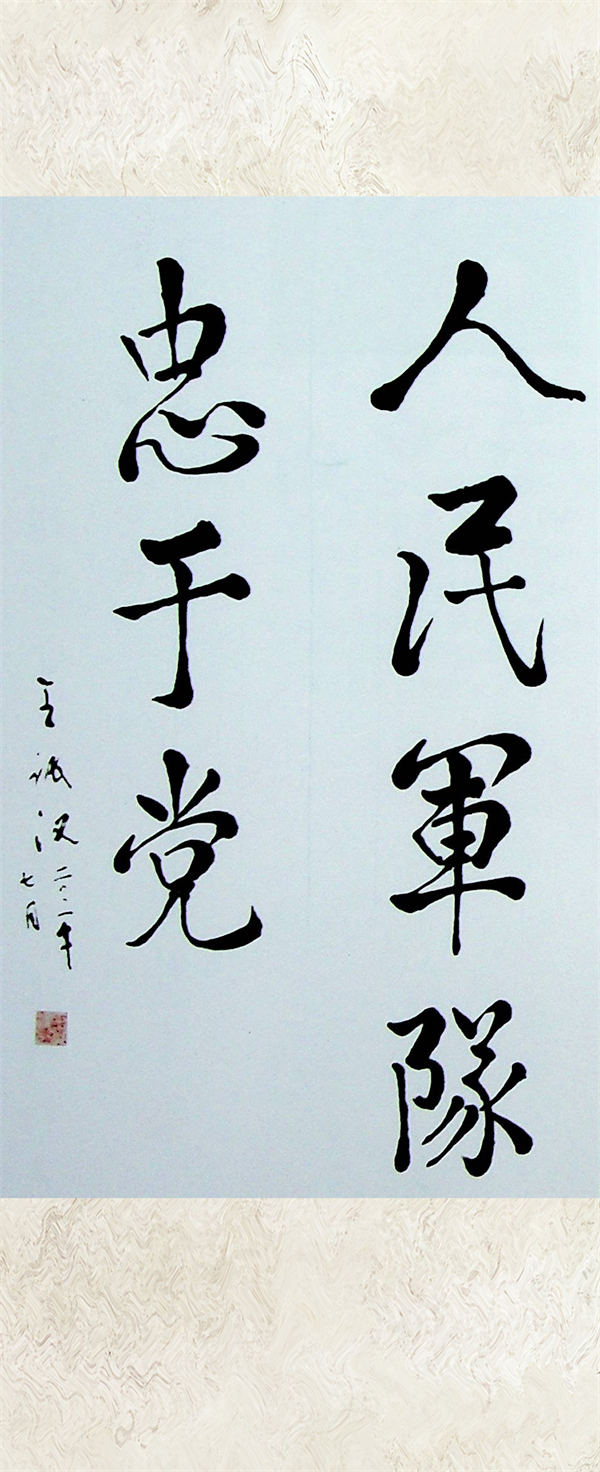 人民軍隊
忠于党
王诚汉二〇一一年
七月